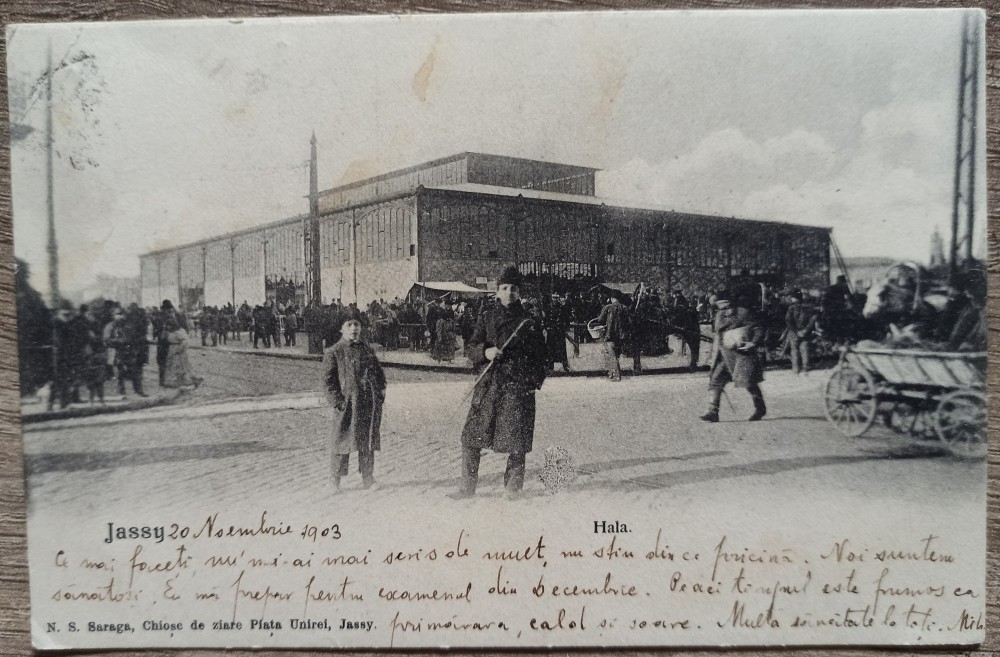 Jassy 20 Noembrie 1903
Hala.
Ce mai faceti, nu mi-ai mai scris de mult, nu stiu din ce pricină. Noi suntem
sănătosi. Eu mă prepar pentru examenul din Decembrie. Pe aci timpul este frumos ca
primăvara, cald si soare. Multa sănătate la toti.
N. S. Saraga, Chioșc de ziare Piața Unirei, Jassy.